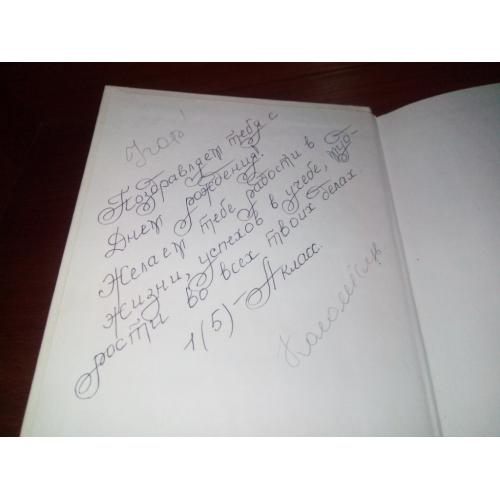 Поздравляем тебя с
Днем рождения!
Желаем тебе радости в
жизни, успехов в учебе, муд-
рости во всех твоих делах.
1(5)-А класс.